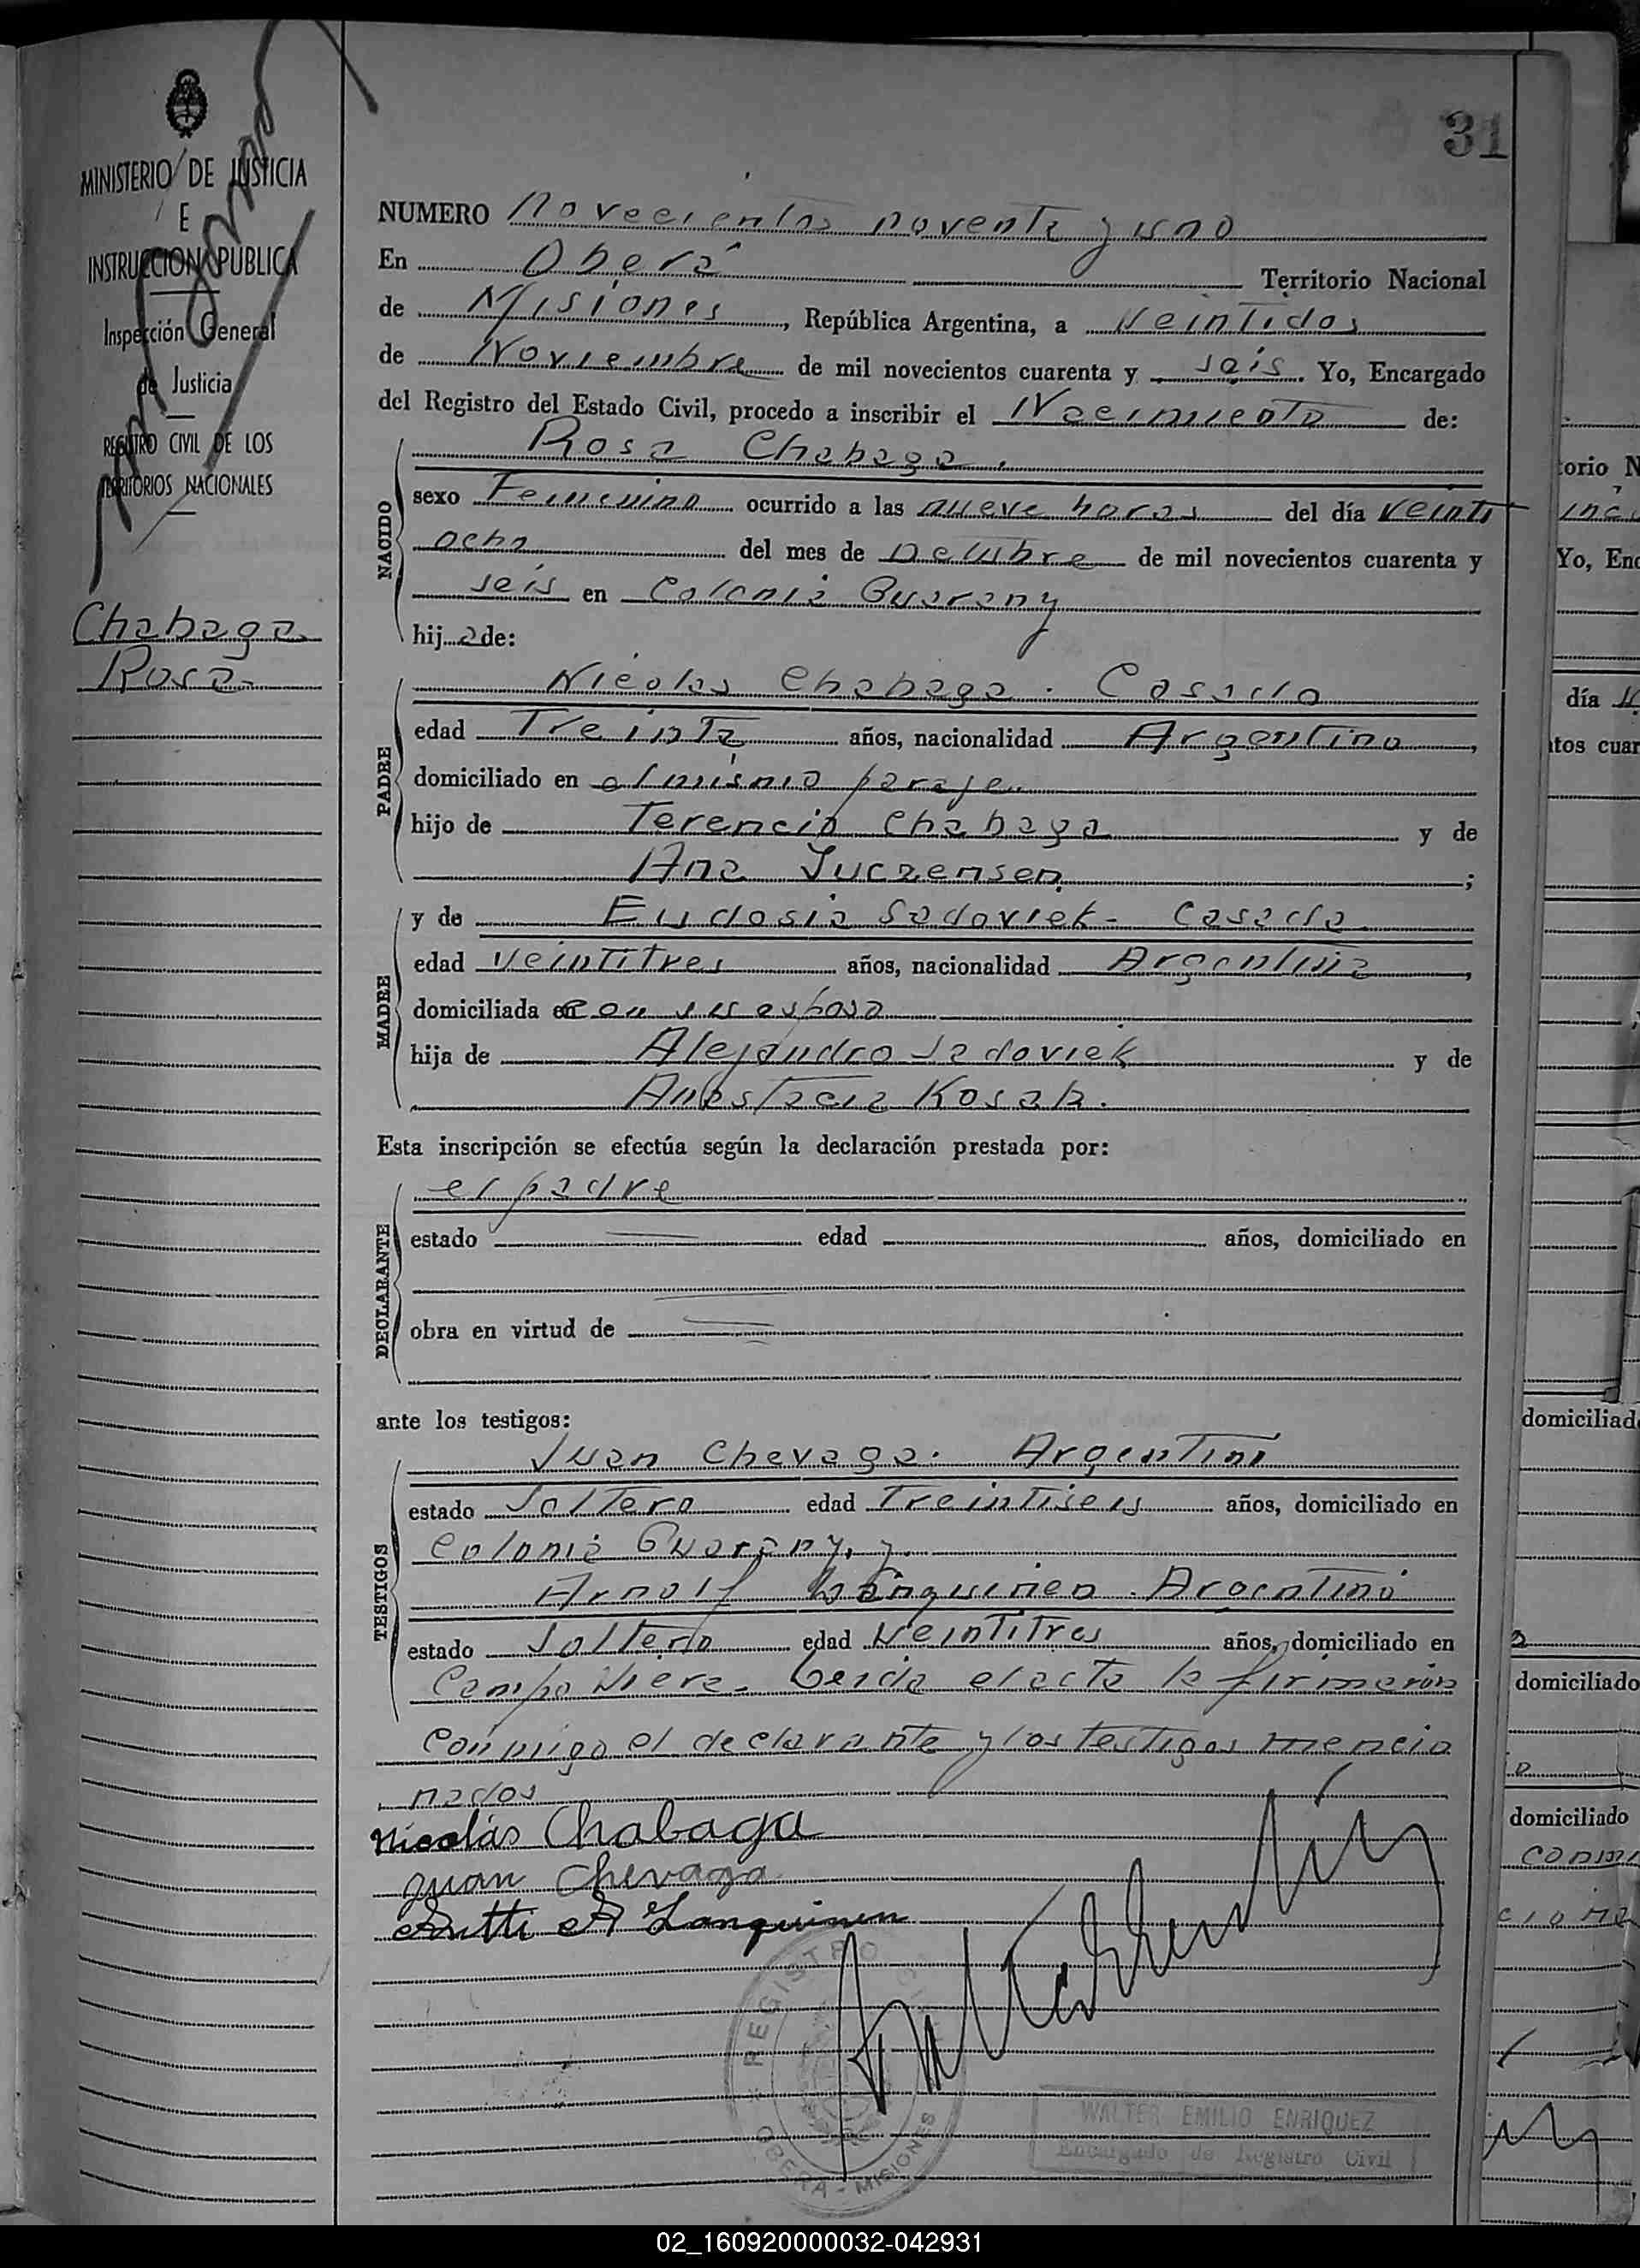 31
MINISTERIO DE JUSTICIA
E
INSTRUCCION PUBLICA
Inspección General
de Justicia
REGISTRO CIVIL DE LOS
TERRITORIOS NACIONALES
Chabaga
Rosa
NUMERO Novecientos noventa y uno
En Oberá Territorio Nacional
de Misiones, República Argentina, a Veintidos
de Noviembre de mil novecientos cuarenta y seis. Yo, Encargado
del Registro del Estado Civil, procedo a inscribir el Nacimiento de:
Rosa Chabaga.
NACIDO
sexo Femenino ocurrido a las nueve horas del día veinti
ocho del mes de Octubre de mil novecientos cuarenta y
seis en Colonia Guarany
hija de:
Nicolas Chabaga. Casado
PADRE
edad Treinta años, nacionalidad Argentino,
domiciliado en el mismo paraje.
hijo de Terencio Chabaga y de
Ana ;
y de Eudosia Sadoviek - Casada
MADRE
edad Veintitres años, nacionalidad Argentina,
domiciliada en con su esposo
hija de Alejandro Sadoviek y de
Anastacia Kosak.
Esta inscripción se efectúa según la declaración prestada por:
el padre
DECLARANTE
estado edad años, domiciliado en
obra en virtud de
ante los testigos:
Juan Chevaga. Argentino
TESTIGOS
estado Soltero edad Treintiseis años, domiciliado en
Colonia Guarany, y
Arnolf Lanquinen. Argentino
estado Soltero edad Veintitres años, domiciliado en
Campo Viera. Leida el acta la firmaron
conmigo el declarante y los testigos mencio
nados
Nicolás Chabaga
Juan Chevaga
Antti A Lanquinen
REGISTRO
OBERA - MISIONES
WALTER EMILIO ENRIQUEZ
Encargado de Registro Civil
02_160920000032-042931